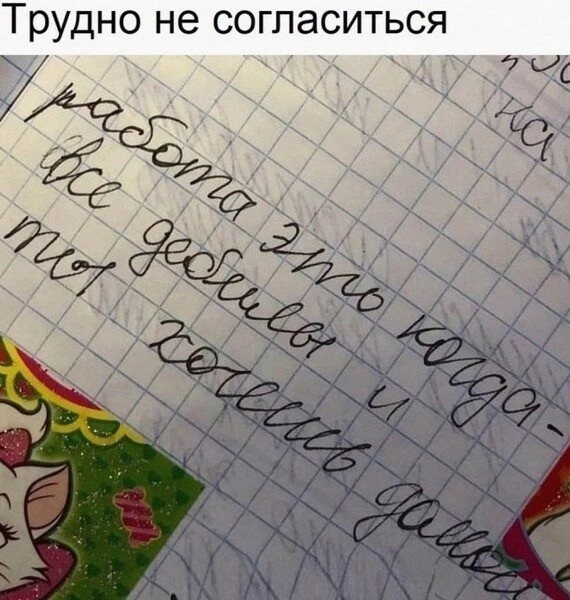 Трудно не согласиться
работа это когда-
все дебилы и
ты хочешь домой
ка